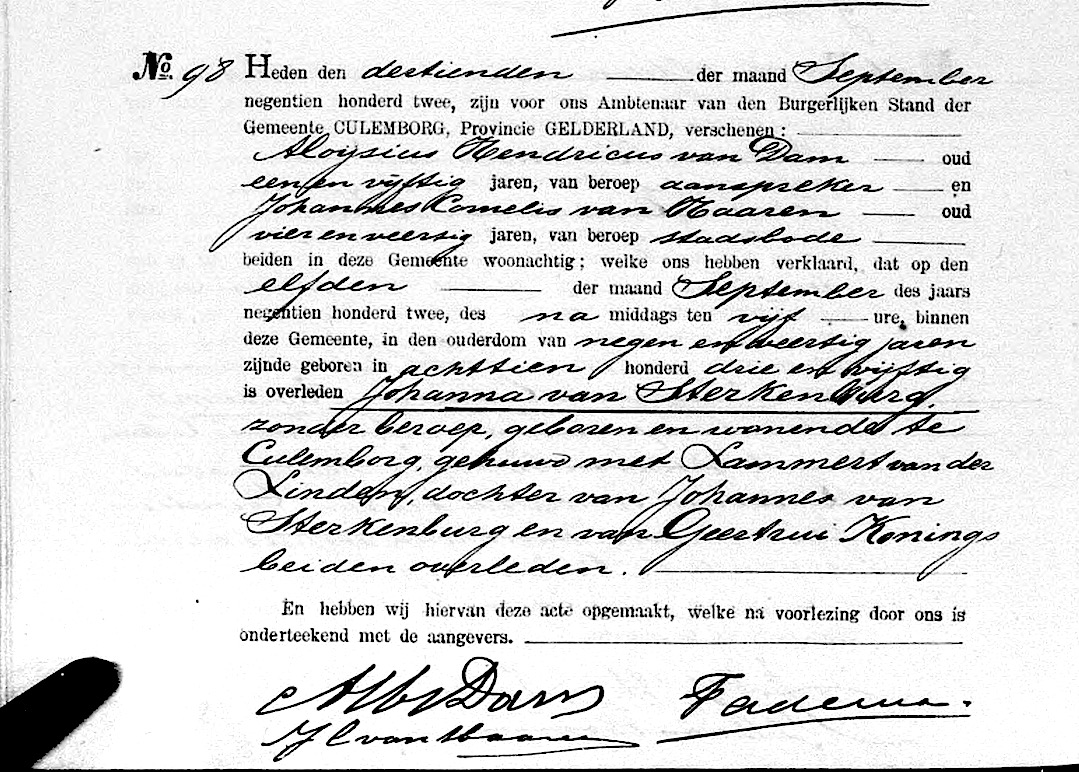 No. 98 Heden den dertienden der maand September
negentien honderd twee, zijn voor ons Ambtenaar van den Burgerlijken Stand der
Gemeente CULEMBORG, Provincie GELDERLAND, verschenen:
Aloysius Hendricus van Dam oud
een en vijftig jaren, van beroep aanspreker en
Johannes Cornelis van Haaren oud
vier en veertig jaren, van beroep stadsbode
beiden in deze Gemeente woonachtig; welke ons hebben verklaard, dat op den
elfden der maand September des jaars
negentien honderd twee, des na middags ten vijf ure, binnen
deze Gemeente, in den ouderdom van negen en veertig jaren
zijnde geboren in achttien honderd drie en vijftig
is overleden Johanna van Sterkenburg,
zonder beroep, geboren en wonende te
Culemborg, gehuwd met Lammert van der
Linden, dochter van Johannes van
Sterkenburg en van Geertrui Konings
beiden overleden.
En hebben wij hiervan deze acte opgemaakt, welke na voorlezing door ons is
onderteekend met de aangevers.
Dam Fadema.
J C van Haaren